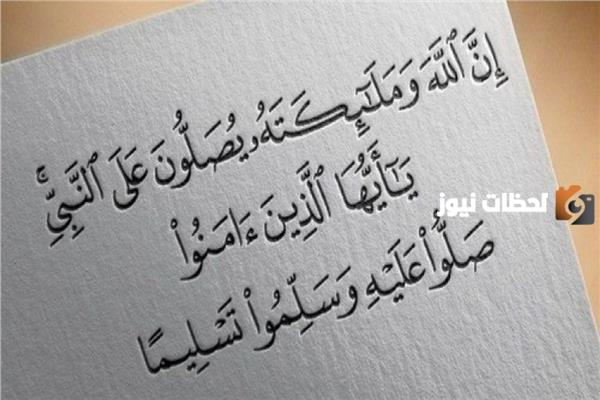 إِنَّ ٱللَّهَ وَمَلَٰٓئِكَتَهُۥ يُصَلُّونَ عَلَى ٱلنَّبِيِّۚ
يَٰٓأَيُّهَا ٱلَّذِينَ ءَامَنُوا۟
صَلُّوا۟ عَلَيْهِ وَسَلِّمُوا۟ تَسْلِيمًا
لحظات نيوز